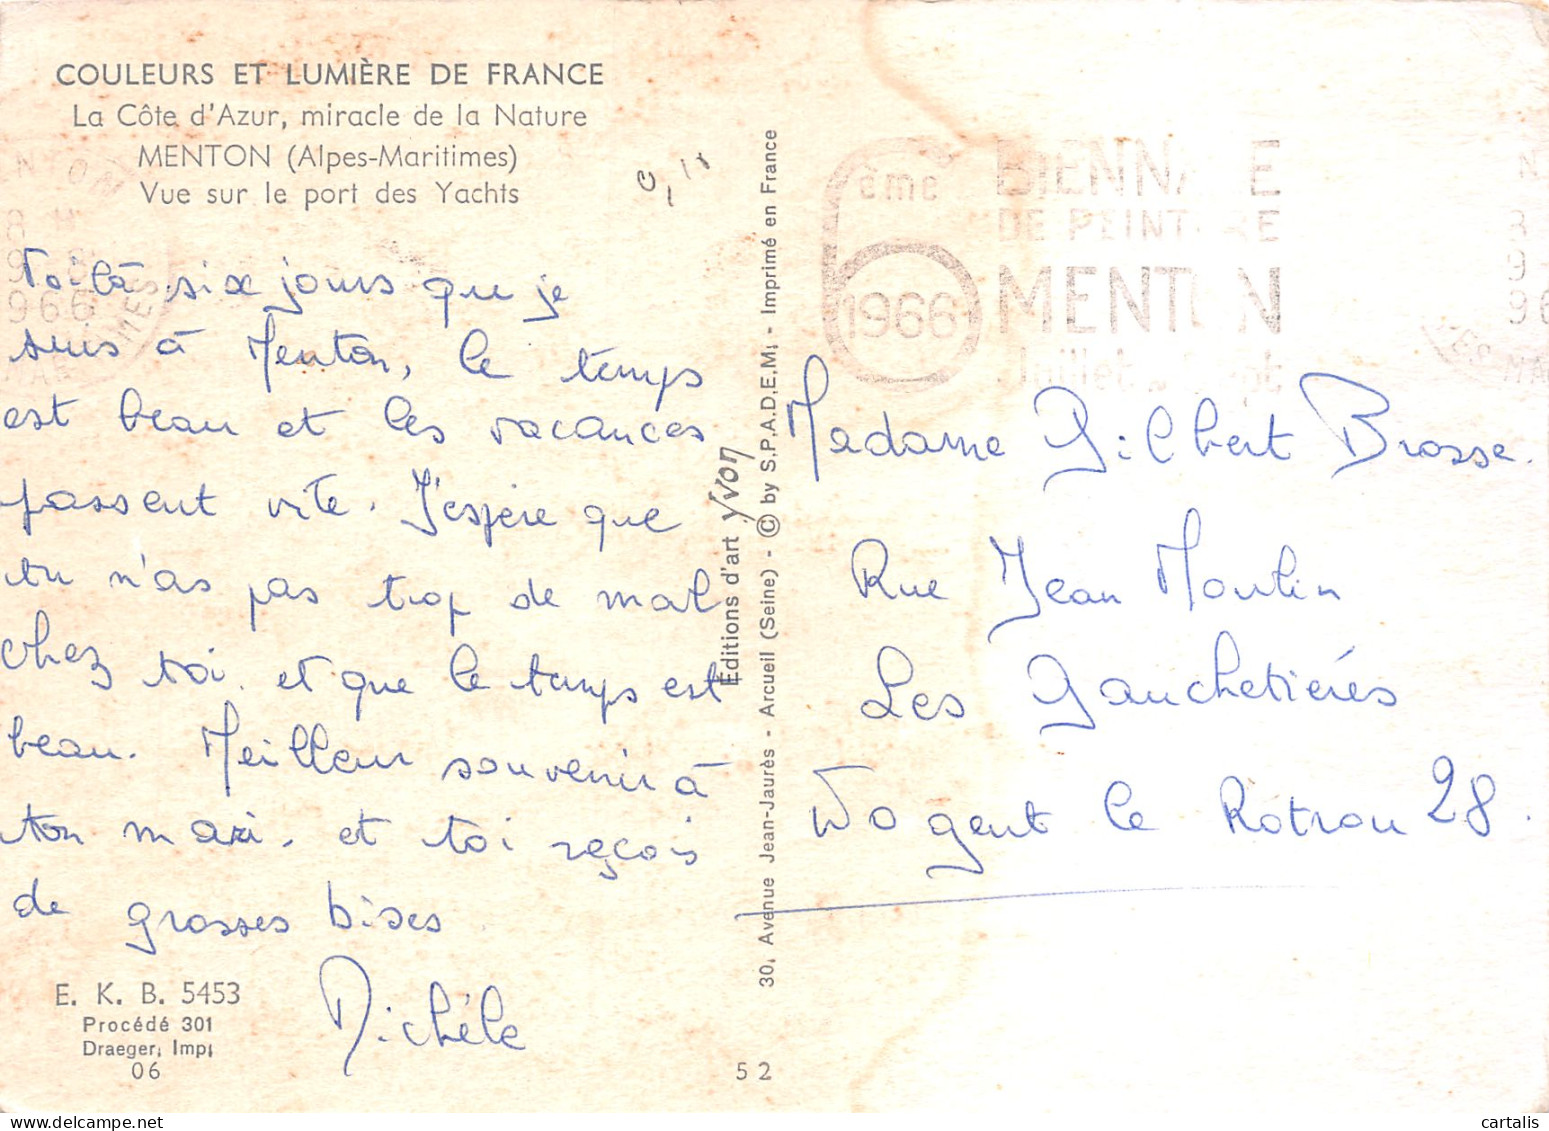 COULEURS ET LUMIÈRE DE FRANCE
La Côte d'Azur, miracle de la Nature
MENTON (Alpes-Maritimes)
Vue sur le port des Yachts
Voilà six jours que je
suis à Menton, le temps
est beau et les vacances
passent vite. J'espère que
tu n'as pas trop de mal
chez toi, et que le temps est
beau. Meilleur souvenir à
ton mari, et toi reçois
de grosses bises
Michèle
E. K. B. 5453
Procédé 301
Draeger, Imp,
06
52
Editions d'art yvon
30, Avenue Jean-Jaurès - Arcueil (Seine) - © by S.P.A.D.E.M, - Imprimé en France
6ème
1966
BIENNALE
DE PEINTURE
MENTON
Juillet
Madame Gilbert Brosse.
Rue Jean Moulin
Les Gauchetières
Nogent le Rotrou 28.
cartalis